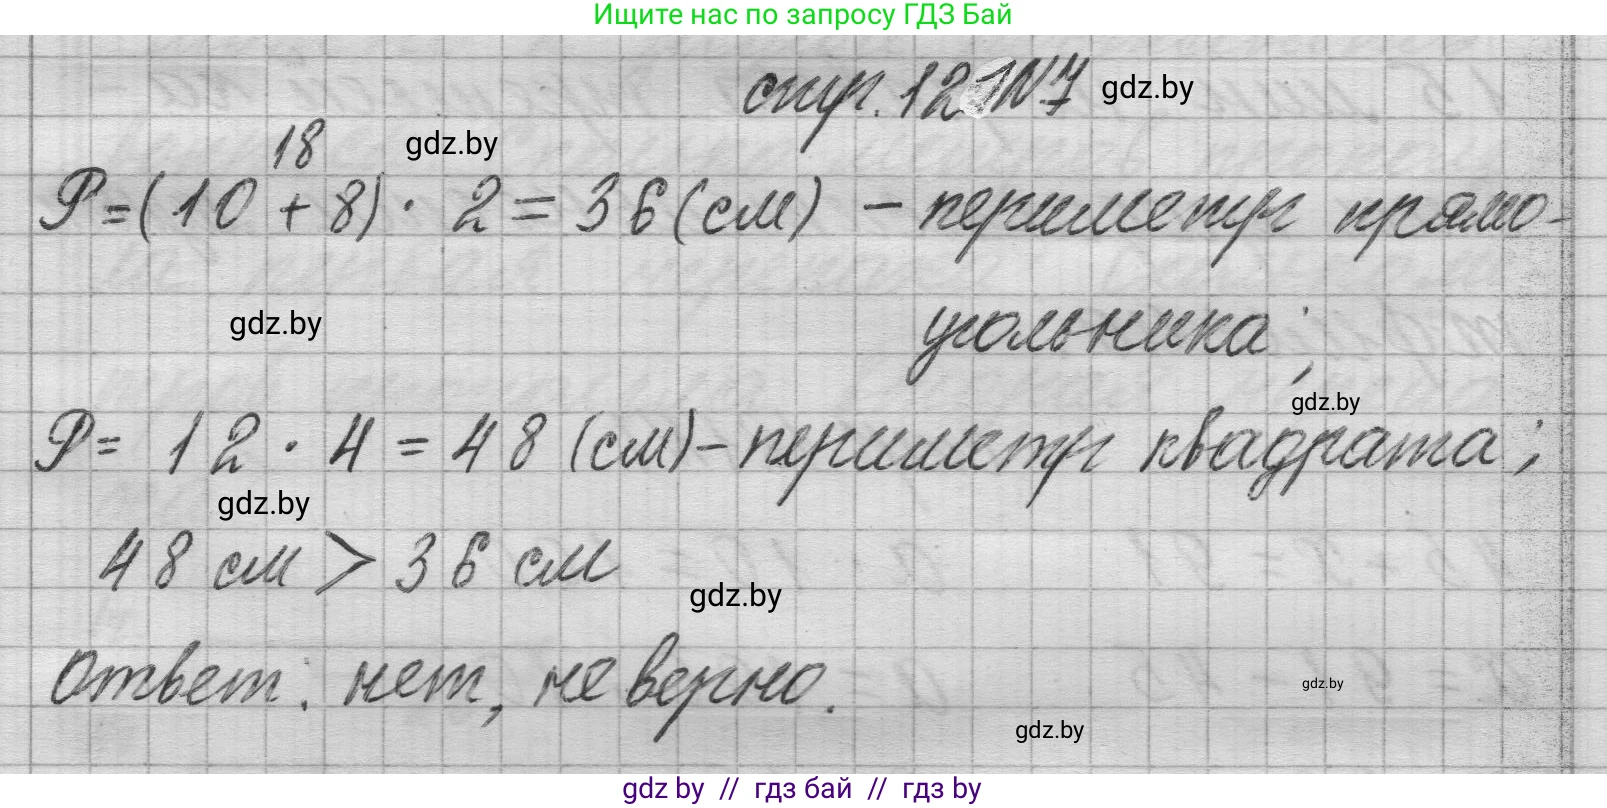 Ищите нас по запросу ГДЗ Бай
стр. 121 №7 gdz.by
18 gdz.by
P=(10+8)·2=36(см) – периметр прямо-
gdz.by угольника;
gdz.by
P= 12·4=48 (см)– периметр квадрата;
gdz.by
48 см > 36 см
gdz.by
Ответ: нет, не верно.
gdz.by
gdz.by
gdz by // гдз бай // гдз by